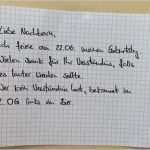 Liebe Nachbarn,
ich feiere am 22.06. meinen Geburtstag.
Vielen Dank für Ihr Verständnis, falls
es lauter werden sollte.
Wer kein Verständnis hat, bekommt im
2. OG links ein Bier.